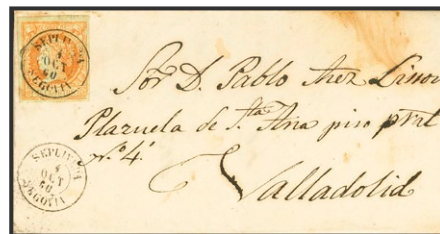 SEPULVEDA
4
OCT
60
SEGOVIA
Sor D. Pablo
Plazuela de Sta Ana piso pral
nº 4.
Valladolid
SEPULVEDA
4
OCT
60
SEGOVIA